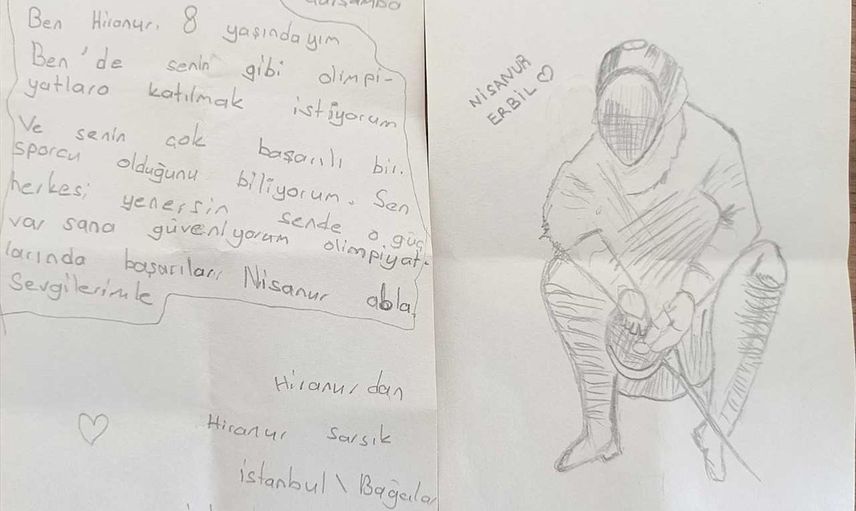 Ben Hiranur. 8 yaşındayım
Ben'de senin gibi olimpi-
yatlara katılmak istiyorum
Ve senin çok başarılı bir.
sporcu olduğunu biliyorum. Sen
herkesi yenersin sende o güç
var sana güveniyorum olimpiyat-
larında başarılar Nisanur abla
Sevgilerimle
Hiranur dan
Hiranur Sarsık
istanbul \ Bağcıla
NİSANUR
ERBİL